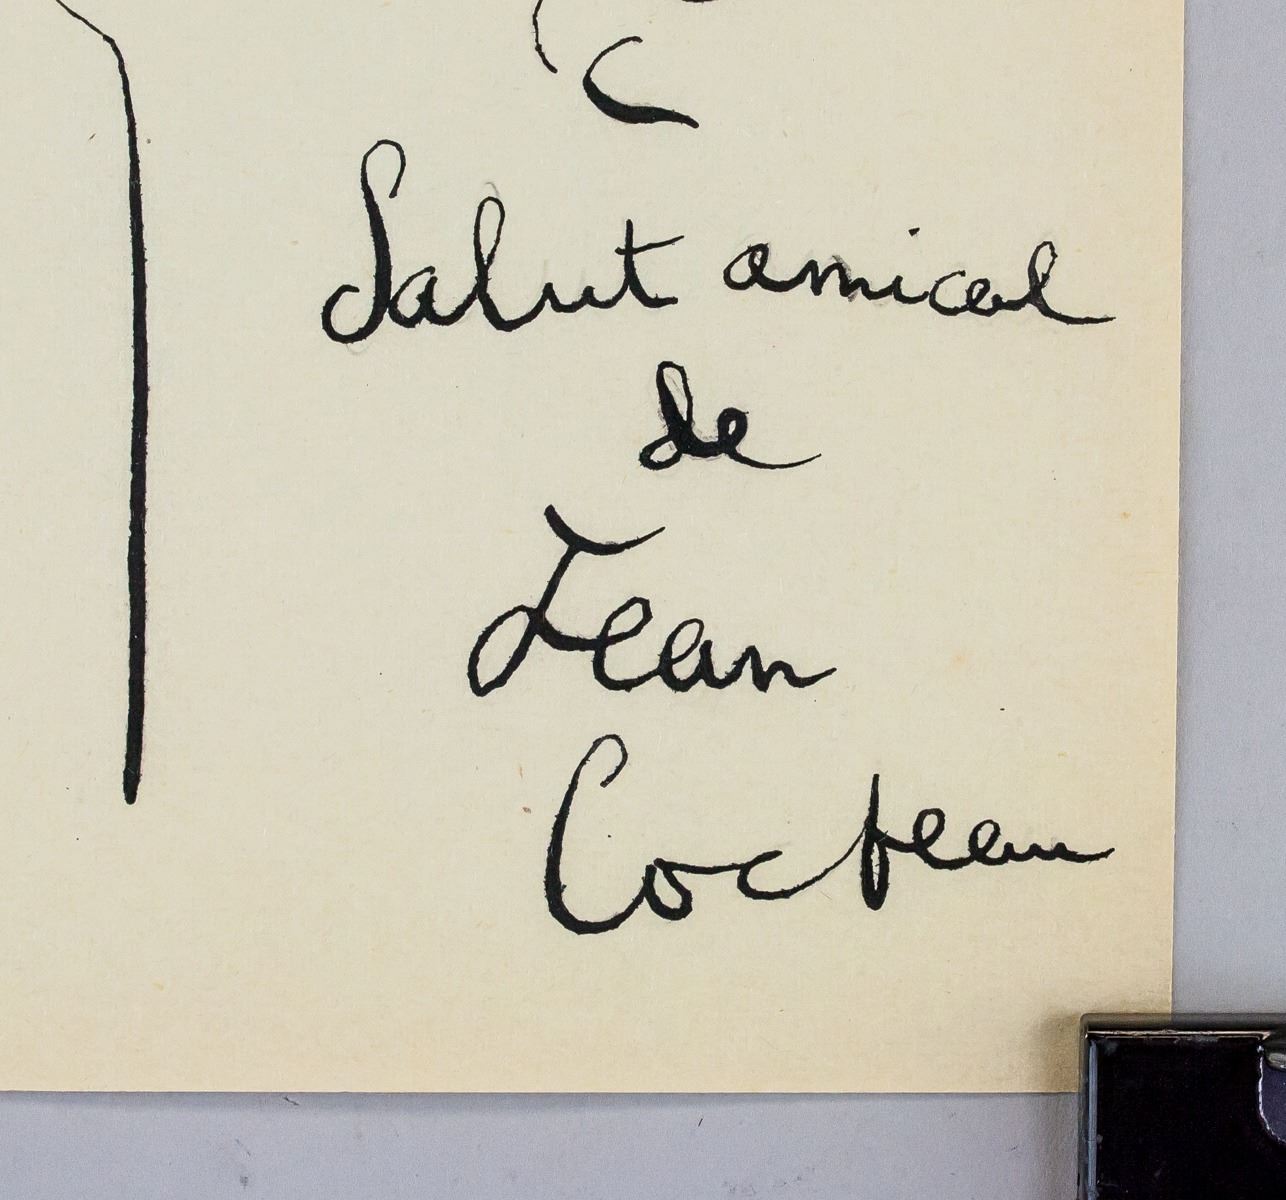 Salut amical
de
Jean
Cocteau